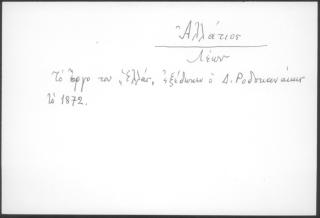 Ἀλλάτιος
Λέων
Τὸ ἔργο του „Ἑλλάς„ ἐξέδωκεν ὁ Δ. Ροδοκανάκις
τὸ 1872.